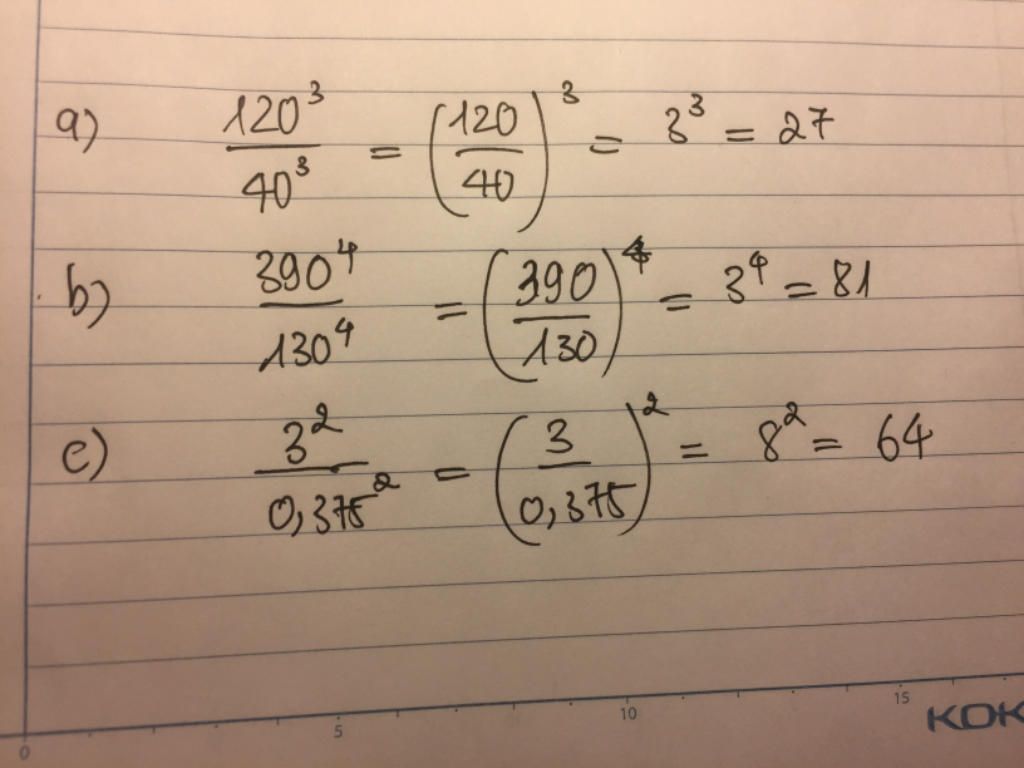 a) 120³/40³ = (120/40)³ = 3³ = 27
b) 390⁴/130⁴ = (390/130)⁴ = 3⁴ = 81
c) 3²/0,375² = (3/0,375)² = 8² = 64
0 5 10 15 KOK